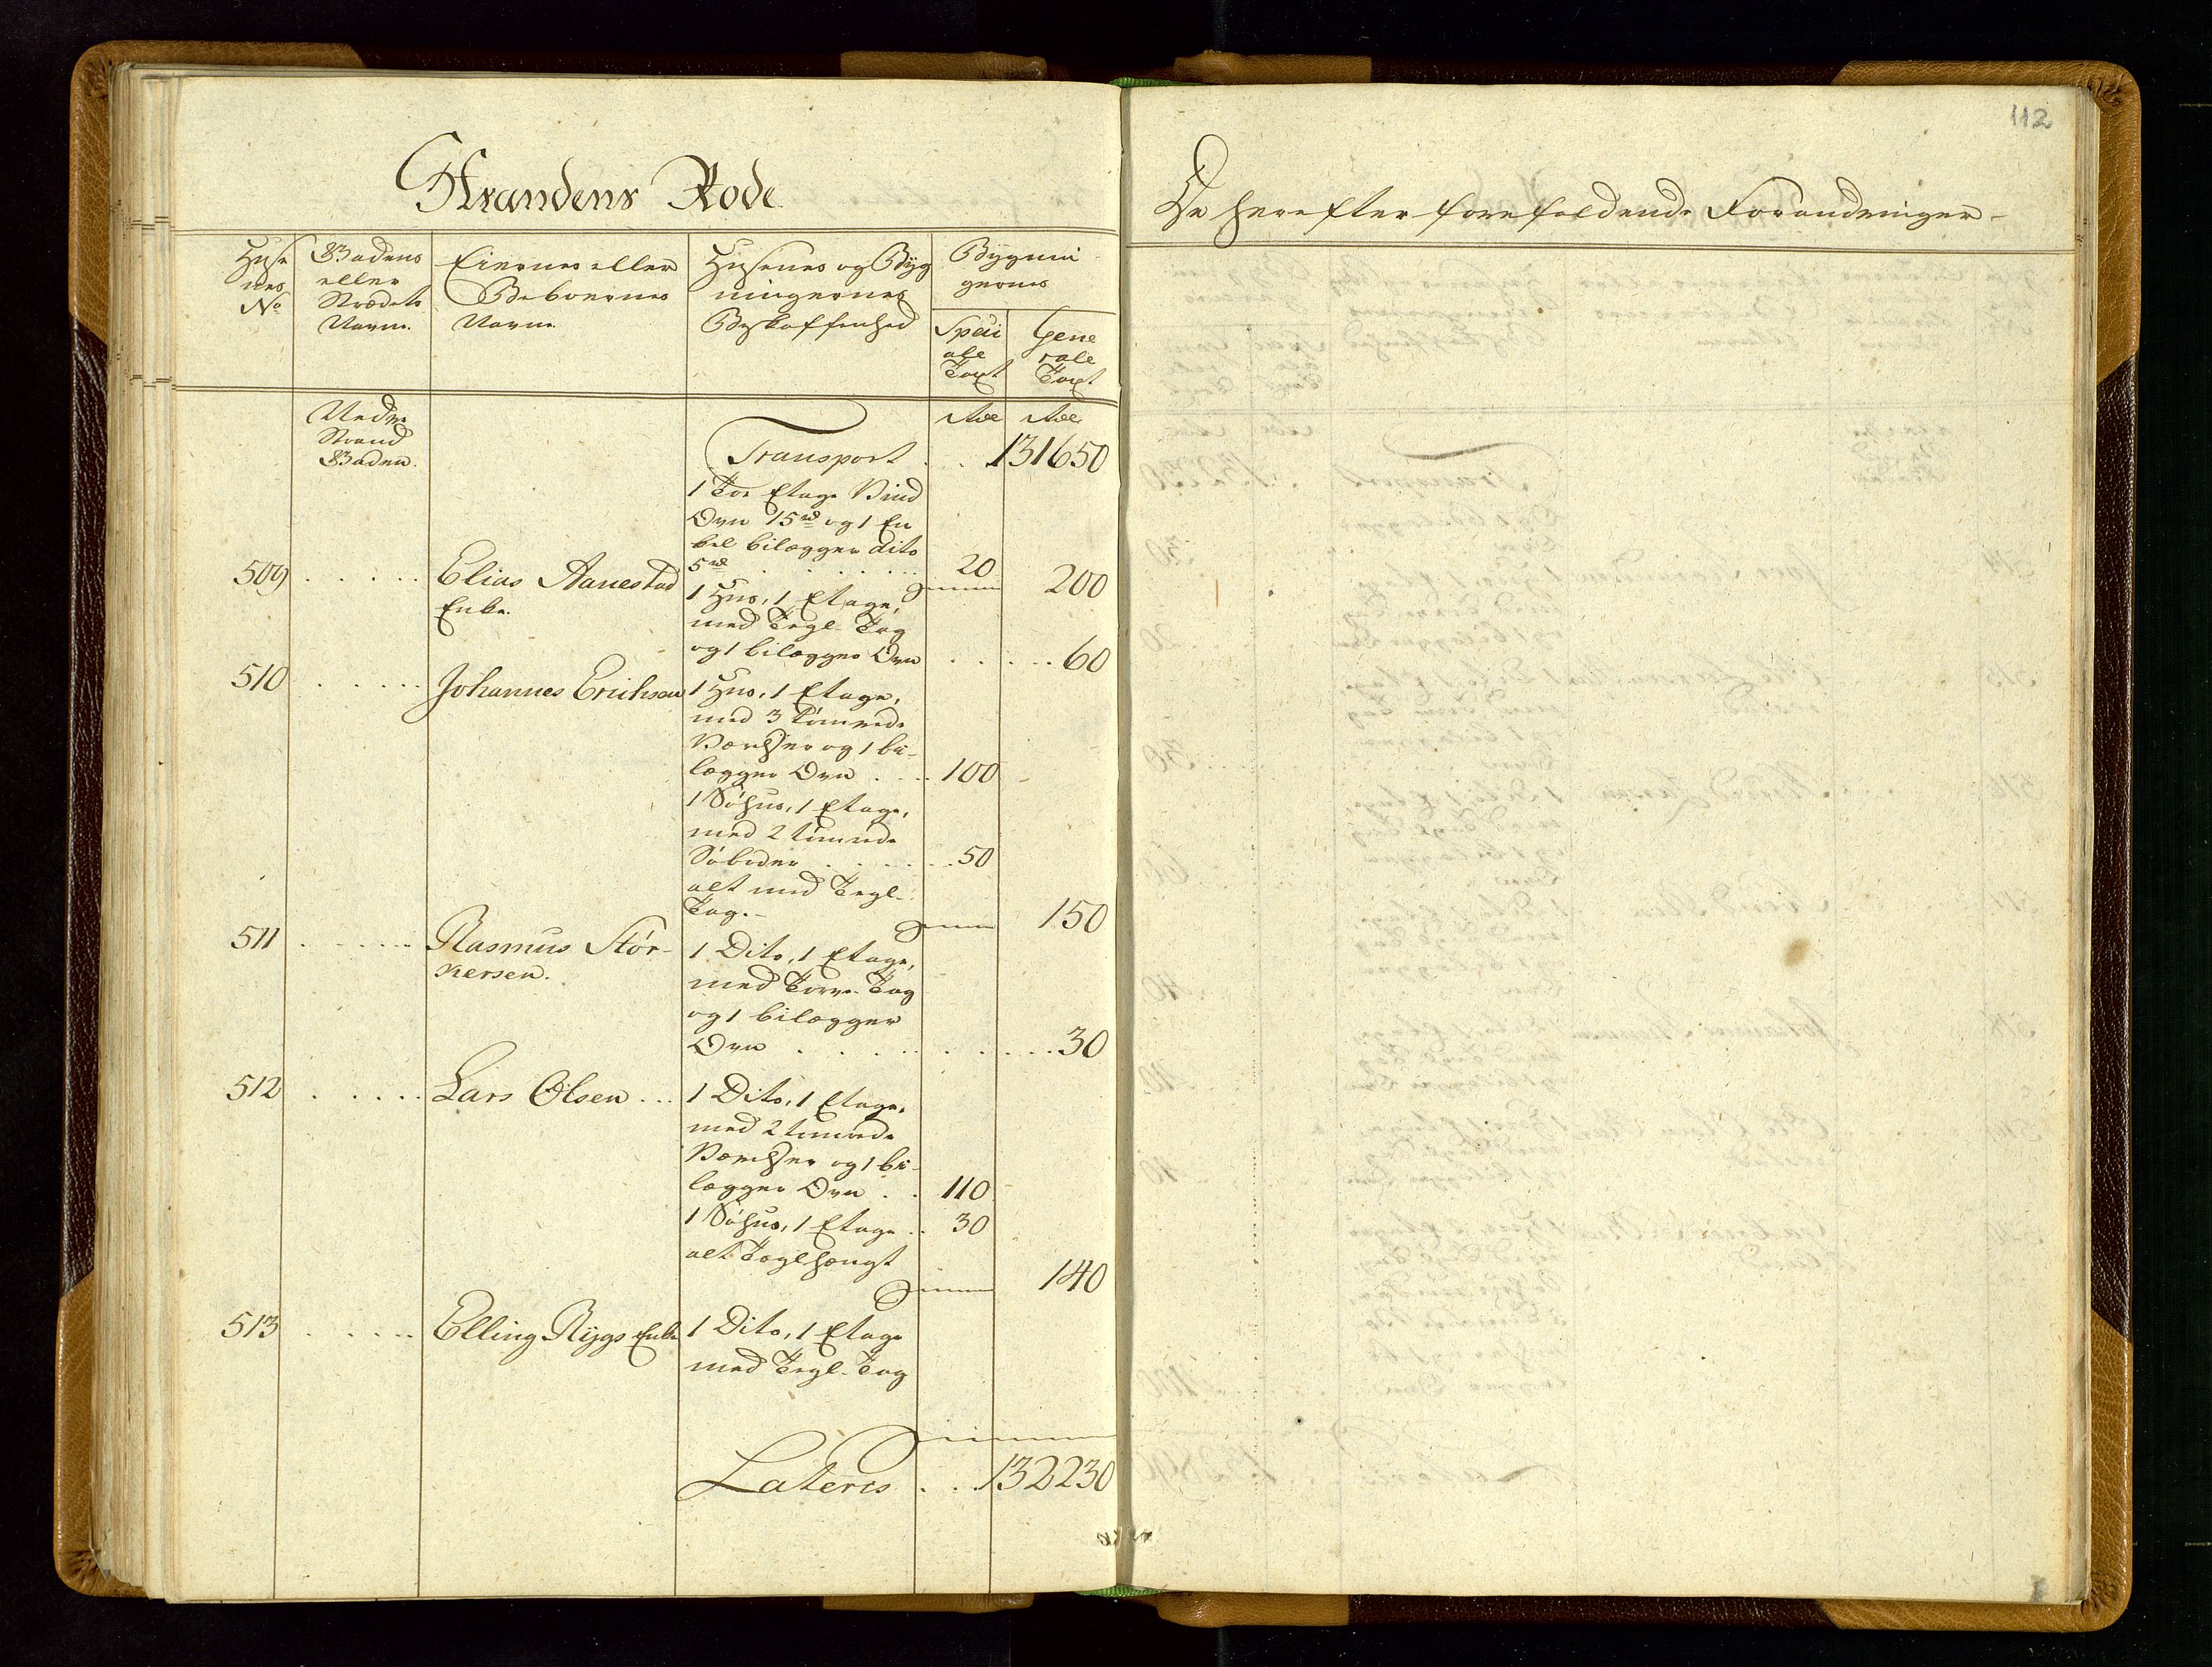 112
Strandens Rode
De herefter forefaldende Forandringer
Huse nes No
Gadens eller Strædets Navne.
Eiernes eller Beboernes Navne
Husenes og Bygningernes Beskaffenhed
Bygnin gernes
Speci ale Taxt
Gene rale Taxt
Nedre Strand Gaden.
Rdl Rdl
Transport . . 131650
1 Toe Etage Vind
Ovn 15 rd og 1 En
kel bilægger dito
5 rd . . . . . 20
Summa 200
509 . . . . . Elias Aanestad
Enke.
1 Hus, 1 Etage,
med Tegl-Tag
og 1 bilægger Ovn . . . . . 60
510 . . . . . Johannes Erichsen
1 Hus, 1 Etage,
med 3 tømrede
Værelser og 1 bi-
lægger Ovn . . . . 100
1 Søhus, 1 Etage,
med 2 tømrede
Søboder . . . . . 50
alt med Tegl-
Tag.-
Summa 150
511 . . . . . Rasmus Stør-
kersen.
1 Dito, 1 Etage,
med Torv-Tag
og 1 bilægger
Ovn . . . . . . . . 30
512 . . . . . Lars Olsen . . .
1 Dito, 1 Etage,
med 2 tømrede
Værelser og 1 bi-
lægger Ovn . . 110
1 Søhus, 1 Etage . . 30
alt Teglhængt
Summa 140
513 . . . . . Elling Rygs Enke
1 Dito, 1 Etage
med Tegl-Tag
Lateris . . 132230